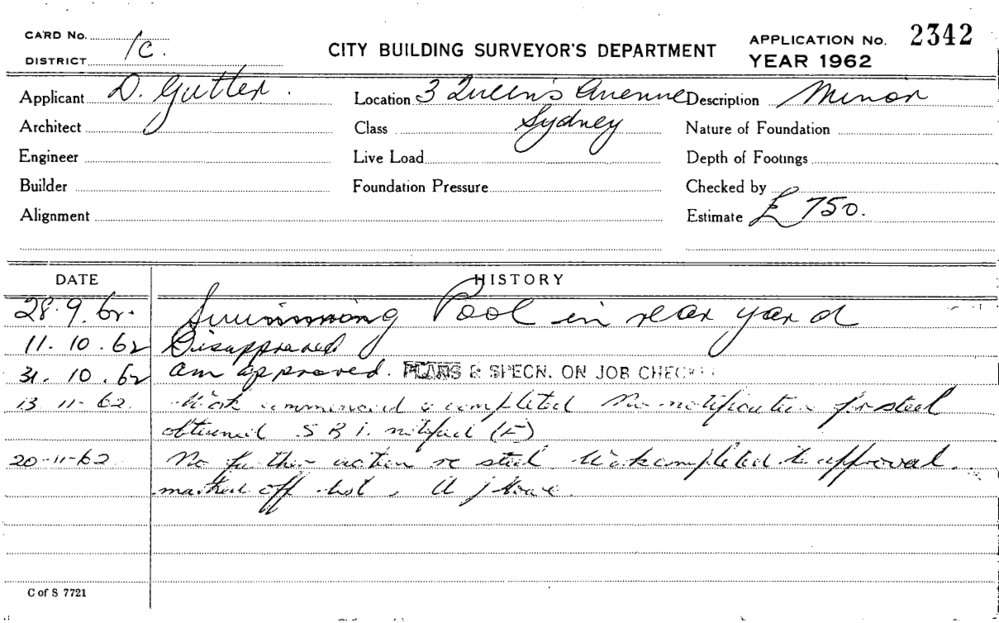 CARD No.
DISTRICT 1C.
CITY BUILDING SURVEYOR'S DEPARTMENT
APPLICATION No. 2342
YEAR 1962
Applicant D. Gutter.
Location 3 Queen's Avenue
Description Minor
Architect
Class Sydney
Nature of Foundation
Engineer
Live Load
Depth of Footings
Builder
Foundation Pressure
Checked by
Alignment
Estimate £ 750.
DATE HISTORY
28.9.62. Swimming Pool in rear yard
11.10.62 Disapproved
31.10.62 am approved. PLANS & SPECN. ON JOB CHECKED
13 11-62. Work commenced & completed No notification for steel
obtained S.B.I. notified (F)
20-11-62 No further action re steel Work completed to approval.
marked off list.
C of S 7721